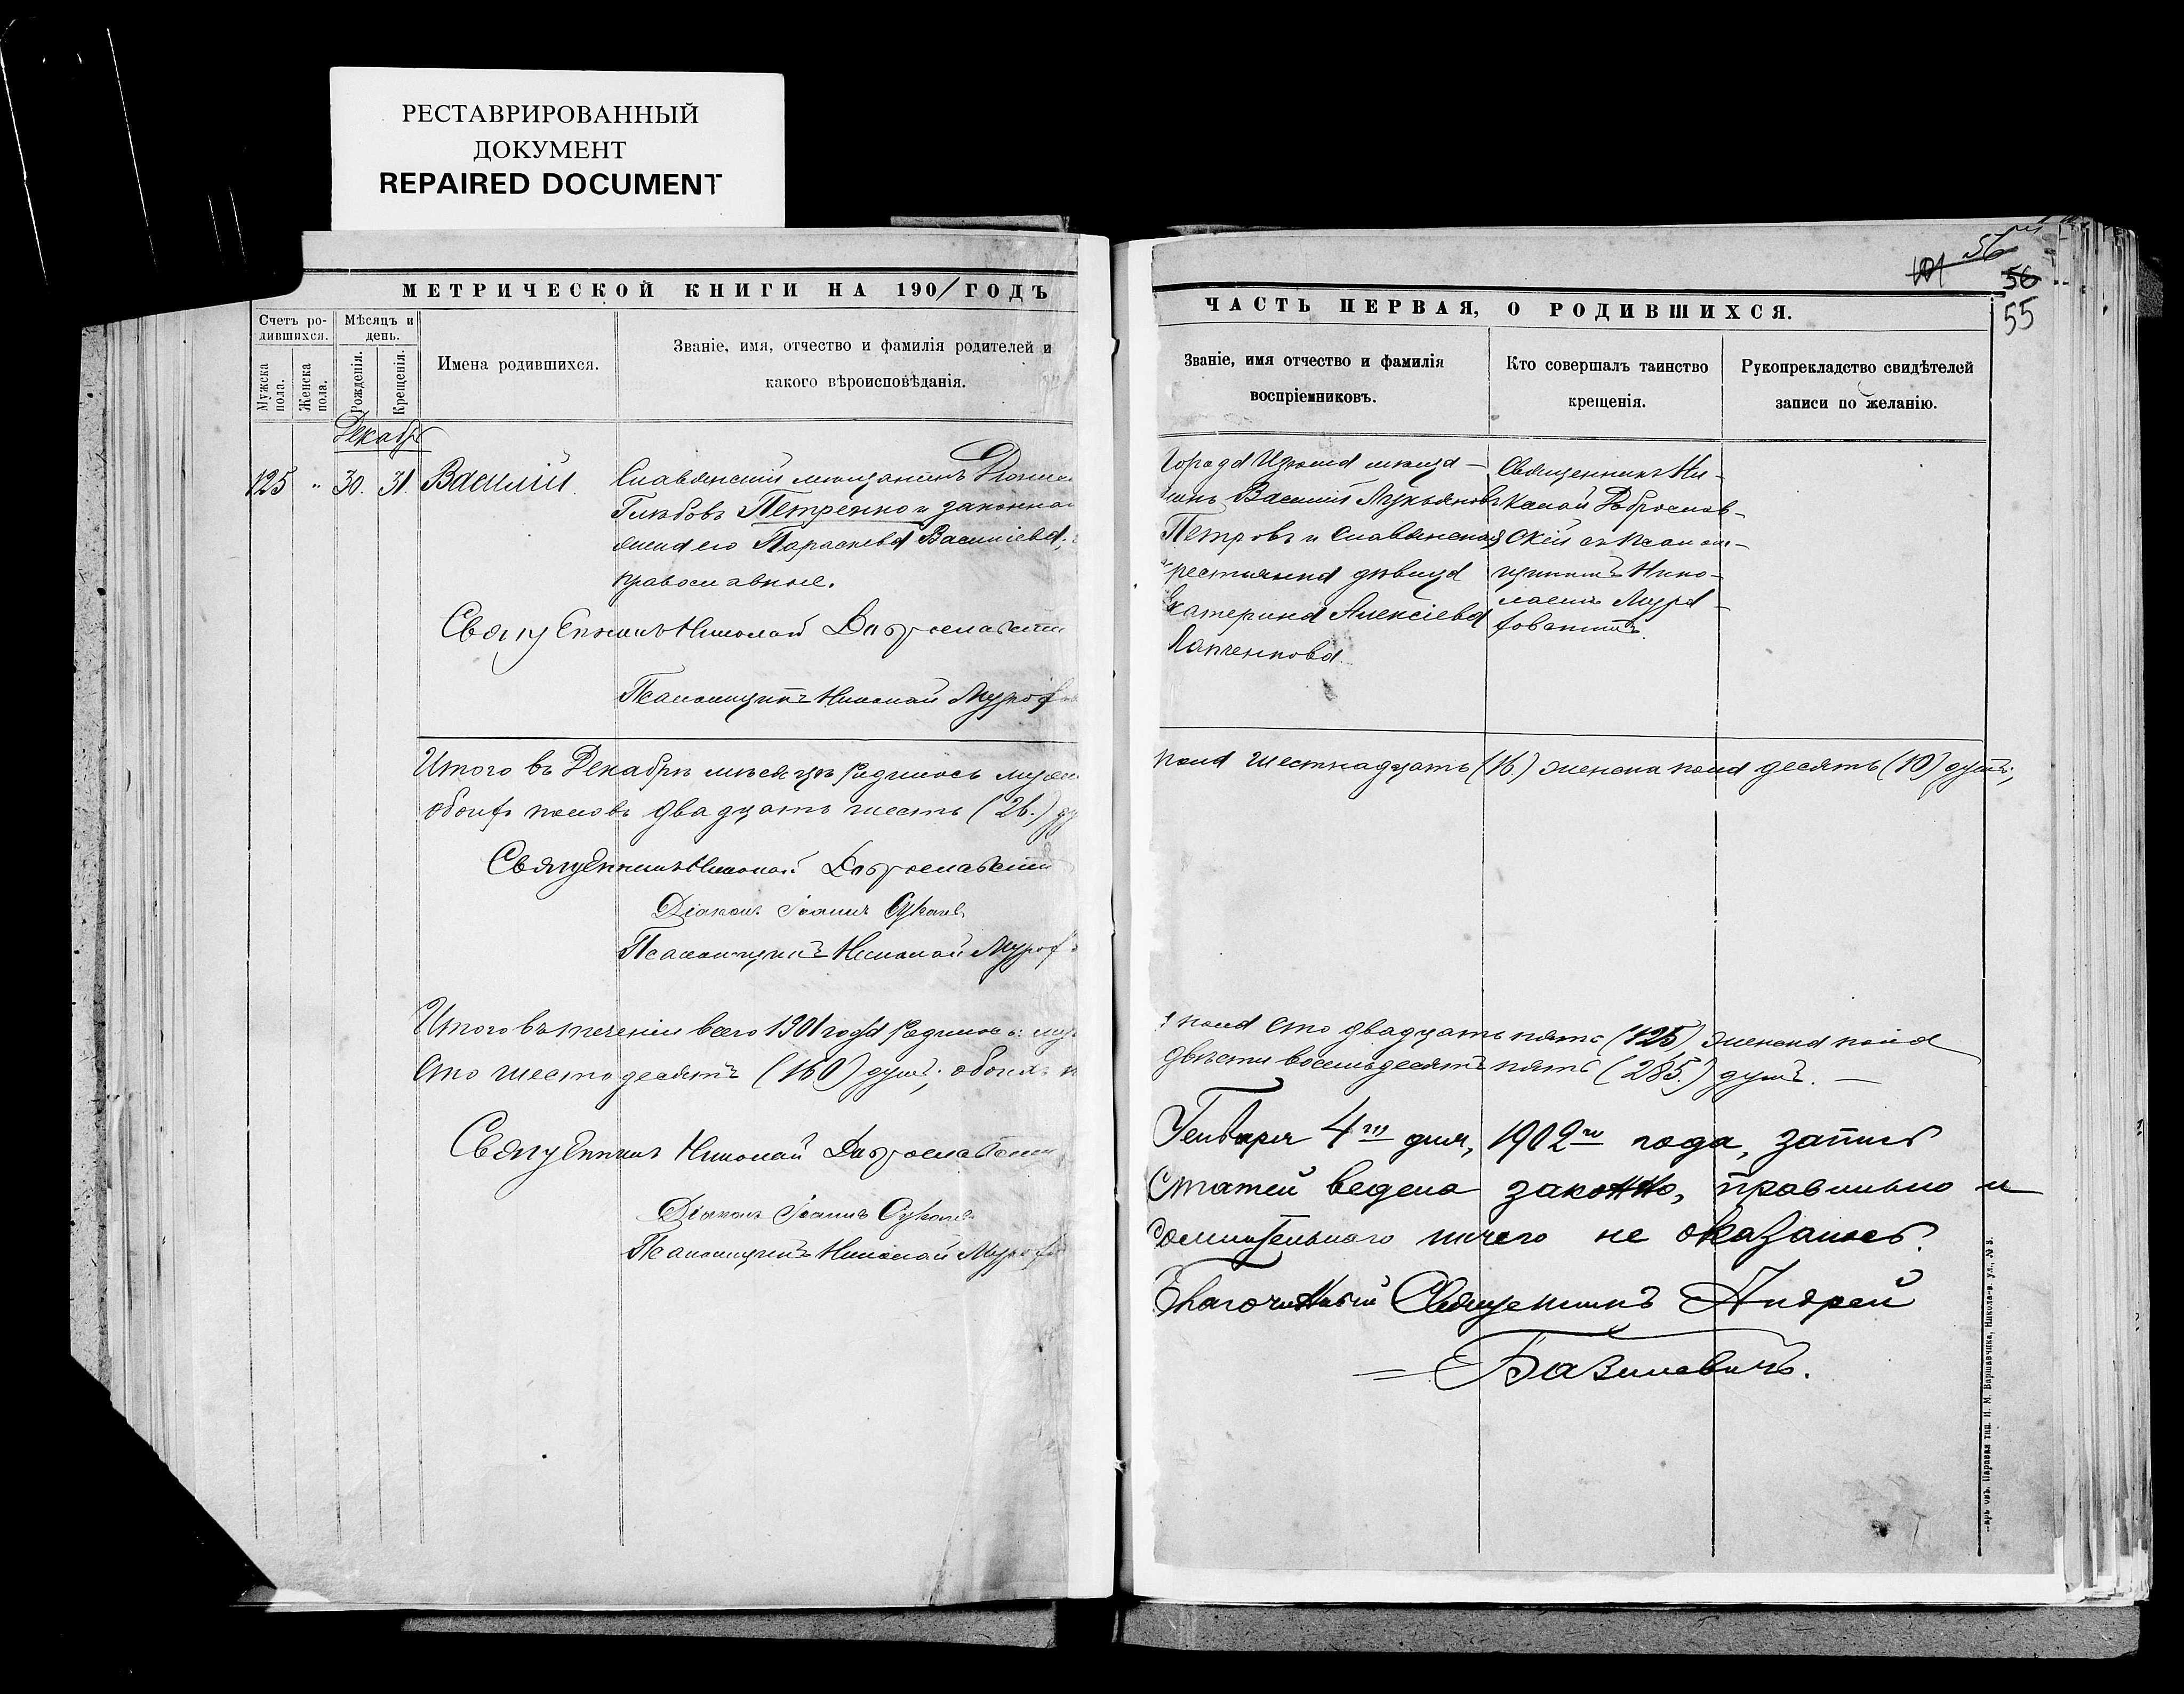 РЕСТАВРИРОВАННЫЙ
ДОКУМЕНТ
REPAIRED DOCUMENT
МЕТРИЧЕСКОЙ КНИГИ НА 1901 ГОДЪ
Счетъ ро-
дившихся.
Мужска пола.
Женска пола.
Мѣсяцъ и
день.
Рожденія.
Крещенія.
Имена родившихся.
Званіе, имя, отчество и фамилія родителей и
какого вѣроисповѣданія.
Декабрь
125 " 30. 31. Василій
Славянскій мѣщанинъ
Глѣбовъ Петренко и законная
жена его Параскева Василіева,
православные.
Священникъ Николай Доброславскій
Псаломщикъ Николай
Итого въ Декабрѣ мѣсяцѣ родилось муж
обоихъ половъ двадцать шесть (26.) ду
Священникъ Николай Доброславскій
Діаконъ Іоаннъ
Псаломщикъ Николай
Итого въ теченіи всего 1901 года родилось: му
сто шестьдесятъ (160) душъ; обоихъ п
Священникъ Николай Доброславскій
Діаконъ Іоаннъ
Псаломщикъ Николай
101 56
56
55
ЧАСТЬ ПЕРВАЯ, О РОДИВШИХСЯ.
Званіе, имя отчество и фамилія
воспріемниковъ.
Кто совершалъ таинство
крещенія.
Рукопрекладство свидѣтелей
записи по желанію.
Города Изюма мѣща-
нинъ Василій Лукьяновъ
Петровъ и славянская
крестьянка дѣвица
Екатерина Алексіева
Лапченкова
Священникъ Ни-
колай Доброслав-
скій съ псалом-
щикомъ Нико-
лаемъ
пола шестнадцать (16.) женска пола десять (10) душъ;
пола сто двадцать пять (125) женска пола
двѣсти восемьдесятъ пять (285.) душъ. —
Генваря 4го дня, 1902го года, запись
статей ведена законно, правильно и
сомнительнаго ничего не оказалось.
Благочинный Священникъ Андрей
Базилевичъ.